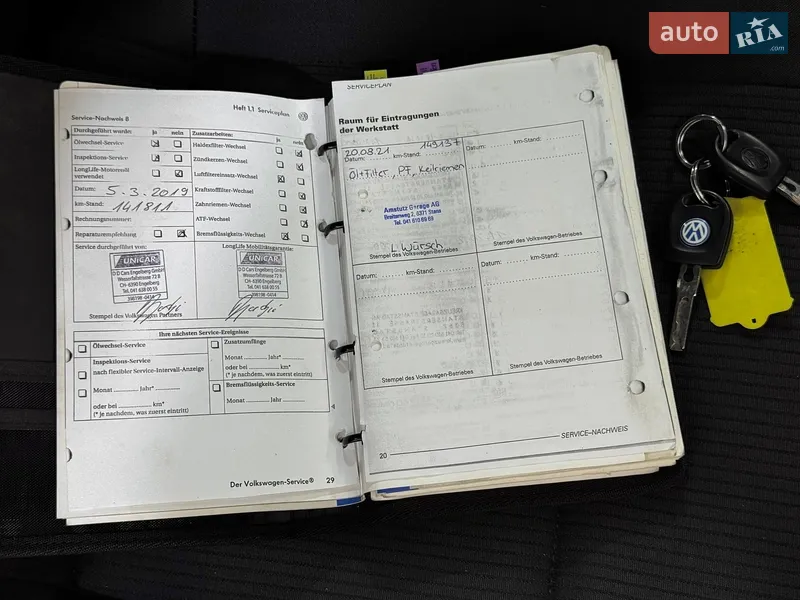 auto RIA .com
Heft 1.1 Serviceplan
Service-Nachweis 8
Durchgeführt wurde: ja nein
Ölwechsel-Service
Inspektions-Service
LongLife-Motorenöl
verwendet
Datum: 5.3.2019
km-Stand: 141811
Rechnungsnummer:
Reparaturempfehlung
Zusatzarbeiten: ja nein
Haldenfilter-Wechsel
Zündkerzen-Wechsel
Luftfiltereinsatz-Wechsel
Kraftstofffilter-Wechsel
Zahnriemen-Wechsel
ATF-Wechsel
Bremsflüssigkeits-Wechsel
Service durchgeführt von:
UNICAR
D D Cars Engelberg GmbH
Wasserfallstrasse 72 B
CH-6390 Engelberg
Tel. 041 638 00 55
Stempel des Volkswagen Partners
LongLife Mobilitätsgarantie:
UNICAR
D D Cars Engelberg GmbH
Wasserfallstrasse 72 B
CH-6390 Engelberg
Tel. 041 638 00 55
Ihre nächsten Service-Ereignisse
Ölwechsel-Service
Inspektions-Service
nach flexibler Service-Intervall-Anzeige
Monat Jahr*
oder bei km*
(* je nachdem, was zuerst eintritt)
Zusatzumfänge
Monat Jahr*
oder bei km*
(* je nachdem, was zuerst eintritt)
Bremsflüssigkeits-Service
Monat Jahr
Der Volkswagen-Service® 29
SERVICEPLAN
Raum für Eintragungen
der Werkstatt
Datum: 20.08.21 km-Stand: 149137
Öl+Filter, PF, Keilriemen
Amstutz Garage AG
Breitenweg 2, 6371 Stans
Tel. 041 610 69 69
L. Würsch
Stempel des Volkswagen-Betriebes
Stempel des Volkswagen-Betriebes
Datum: km-Stand:
Datum: km-Stand:
Stempel des Volkswagen-Betriebes
Stempel des Volkswagen-Betriebes
20 SERVICE–NACHWEIS